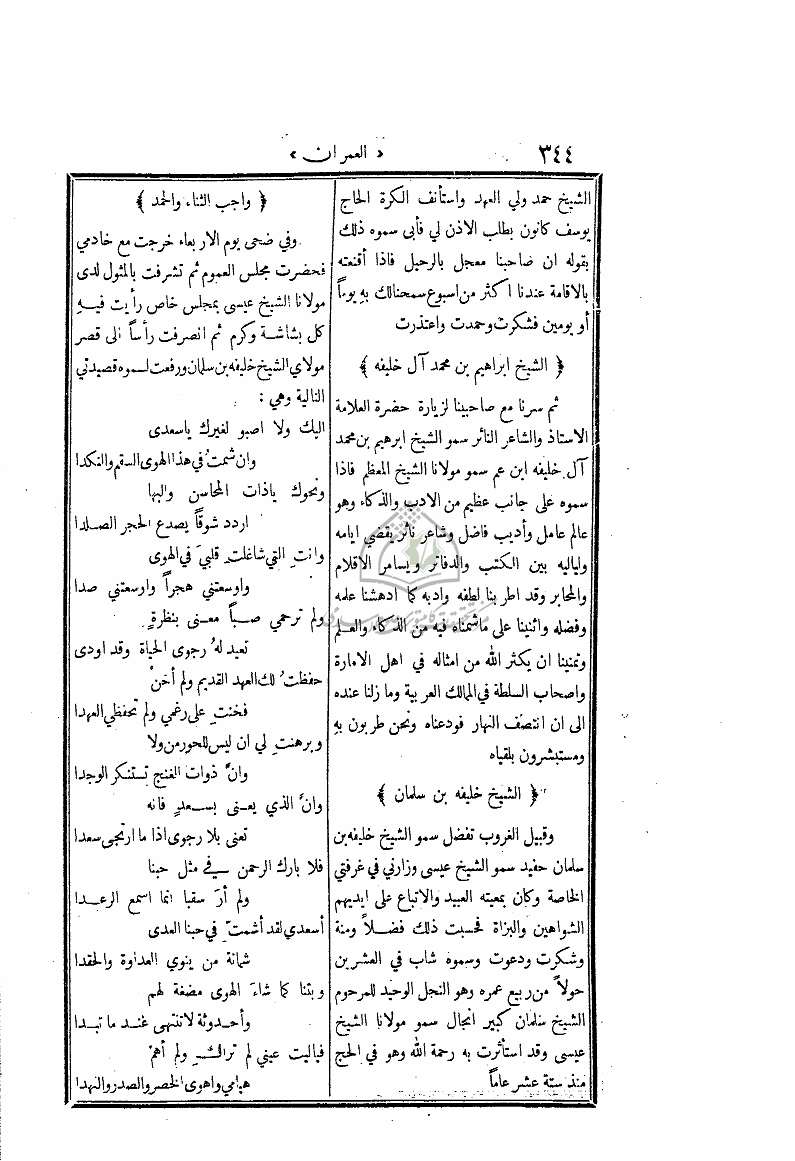 ٣٤٤
« العمران »
الشيخ حمد ولي العهد واستأنف الكرة الحاج
يوسف كانون بطلب الاذن لي فأبى سموه ذلك
بقوله ان ضاحبنا معجل بالرحيل فاذا أقنعته
بالاقامة عندنا اكثر من اسبوع سمحنالك به يوماً
أو يومين فشكرت وحمدت واعتذرت
﴿ الشيخ ابراهيم بن محمد آل خليفه ﴾
ثم سرنا مع صاحبينا لزيارة حضرة العلامة
الاستاذ والشاعر الناثر سمو الشيخ ابرهيم بن محمد
آل خليفه ابن عم سمو مولانا الشيخ المعظم فاذا
سموه على جانب عظيم من الادب والذكاء وهو
عالم عامل وأديب فاضل وشاعر ناثر يقضي ايامه
ولياليه بين الكتب والدفاتر ويسامر الاقلام
والمحابر وقد اطربنا لطفه وادبه كما ادهشنا علمه
وفضله واثنينا على ماشمناه فيه من الذكاء والعلم
وتمنينا ان يكثر الله من امثاله في اهل الامارة
واصحاب السلطة في المالك العربية وما زلنا عنده
الى ان انتصف النهار فودعناه ونحن طربون به
ومستبشرون بلقياه
﴿ الشيخ خليفه بن سلمان ﴾
وقبيل الغروب تفضل سمو الشيخ خليفه بن
سلمان حفيد سمو الشيخ عيسى وزارني في غرفتي
الخاصة وكان بمعيته العبيد والاتباع على ايديهم
الشواهين والبزاة فحسبت ذلك فضلاً ومنة
وشكرت ودعوت وسموه شاب في العشرين
حولاً من ربيع عمره وهو النجل الوحيد للمرحوم
الشيخ سلمان كبير انجال سمو مولانا الشيخ
عيسى وقد استأثرت به رحمة الله وهو في الحج
منذ ستة عشر عاماً
﴿ واجب الثناء والحمد ﴾
وفي ضحى يوم الاربعاء خرجت مع خادمي
فحضرت مجلس العموم ثم تشرفت بالمثول لدى
مولانا الشيخ عيسى بمجلس خاص رأيت فيه
كل بشاشة وكرم ثم انصرفت رأساً الى قصر
مولاي الشيخ خليفه بن سلمان ورفعت لسموه قصيدتي
التالية وهي :
اليك ولا اصبو لغيرك ياسعدى
وان شمتُ في هذا الهوى السقم والنكدا
ونحوك ياذات المحاسن والبها
اردد شوقاً يصدع الحجر الصلدا
وانتِ التي شاغلتِ قلبيَ في الهوى
واوسعتني هجراً وارسعتني صدا
ولم ترحمي صباً معنى بنظرةٍ
تعيد لهُ رجوى الحياة وقد اودى
حفظتُ لك العهد القديم ولم أخنْ
فخنتِ على رغمي ولم تحفظي العهدا
وبرهنتِ لي ان ليس للحور من ولا
وانَّ ذوات الغنج تستنكر الوجدا
وانَّ الذي يعنى بسعدٍ فانه
تعنى بلا رجوى اذا ما ارتجى سعدا
فلا بارك الرحمن في مثل حبنا
ولم أرَ سقبا انما اسمع الرعدا
أسعدي لقد أشمتِ في حبنا العدى
شمانة من ينوي العداوة والحقدا
وبتنا كما شاءَ الهوى مضغة لهم
وأحدوثة لاتنتهى عند ما تبدا
فياليت عيني لم تراكِ ولم أهمْ
هيامي واهوى الخصر والصدر والنهدا